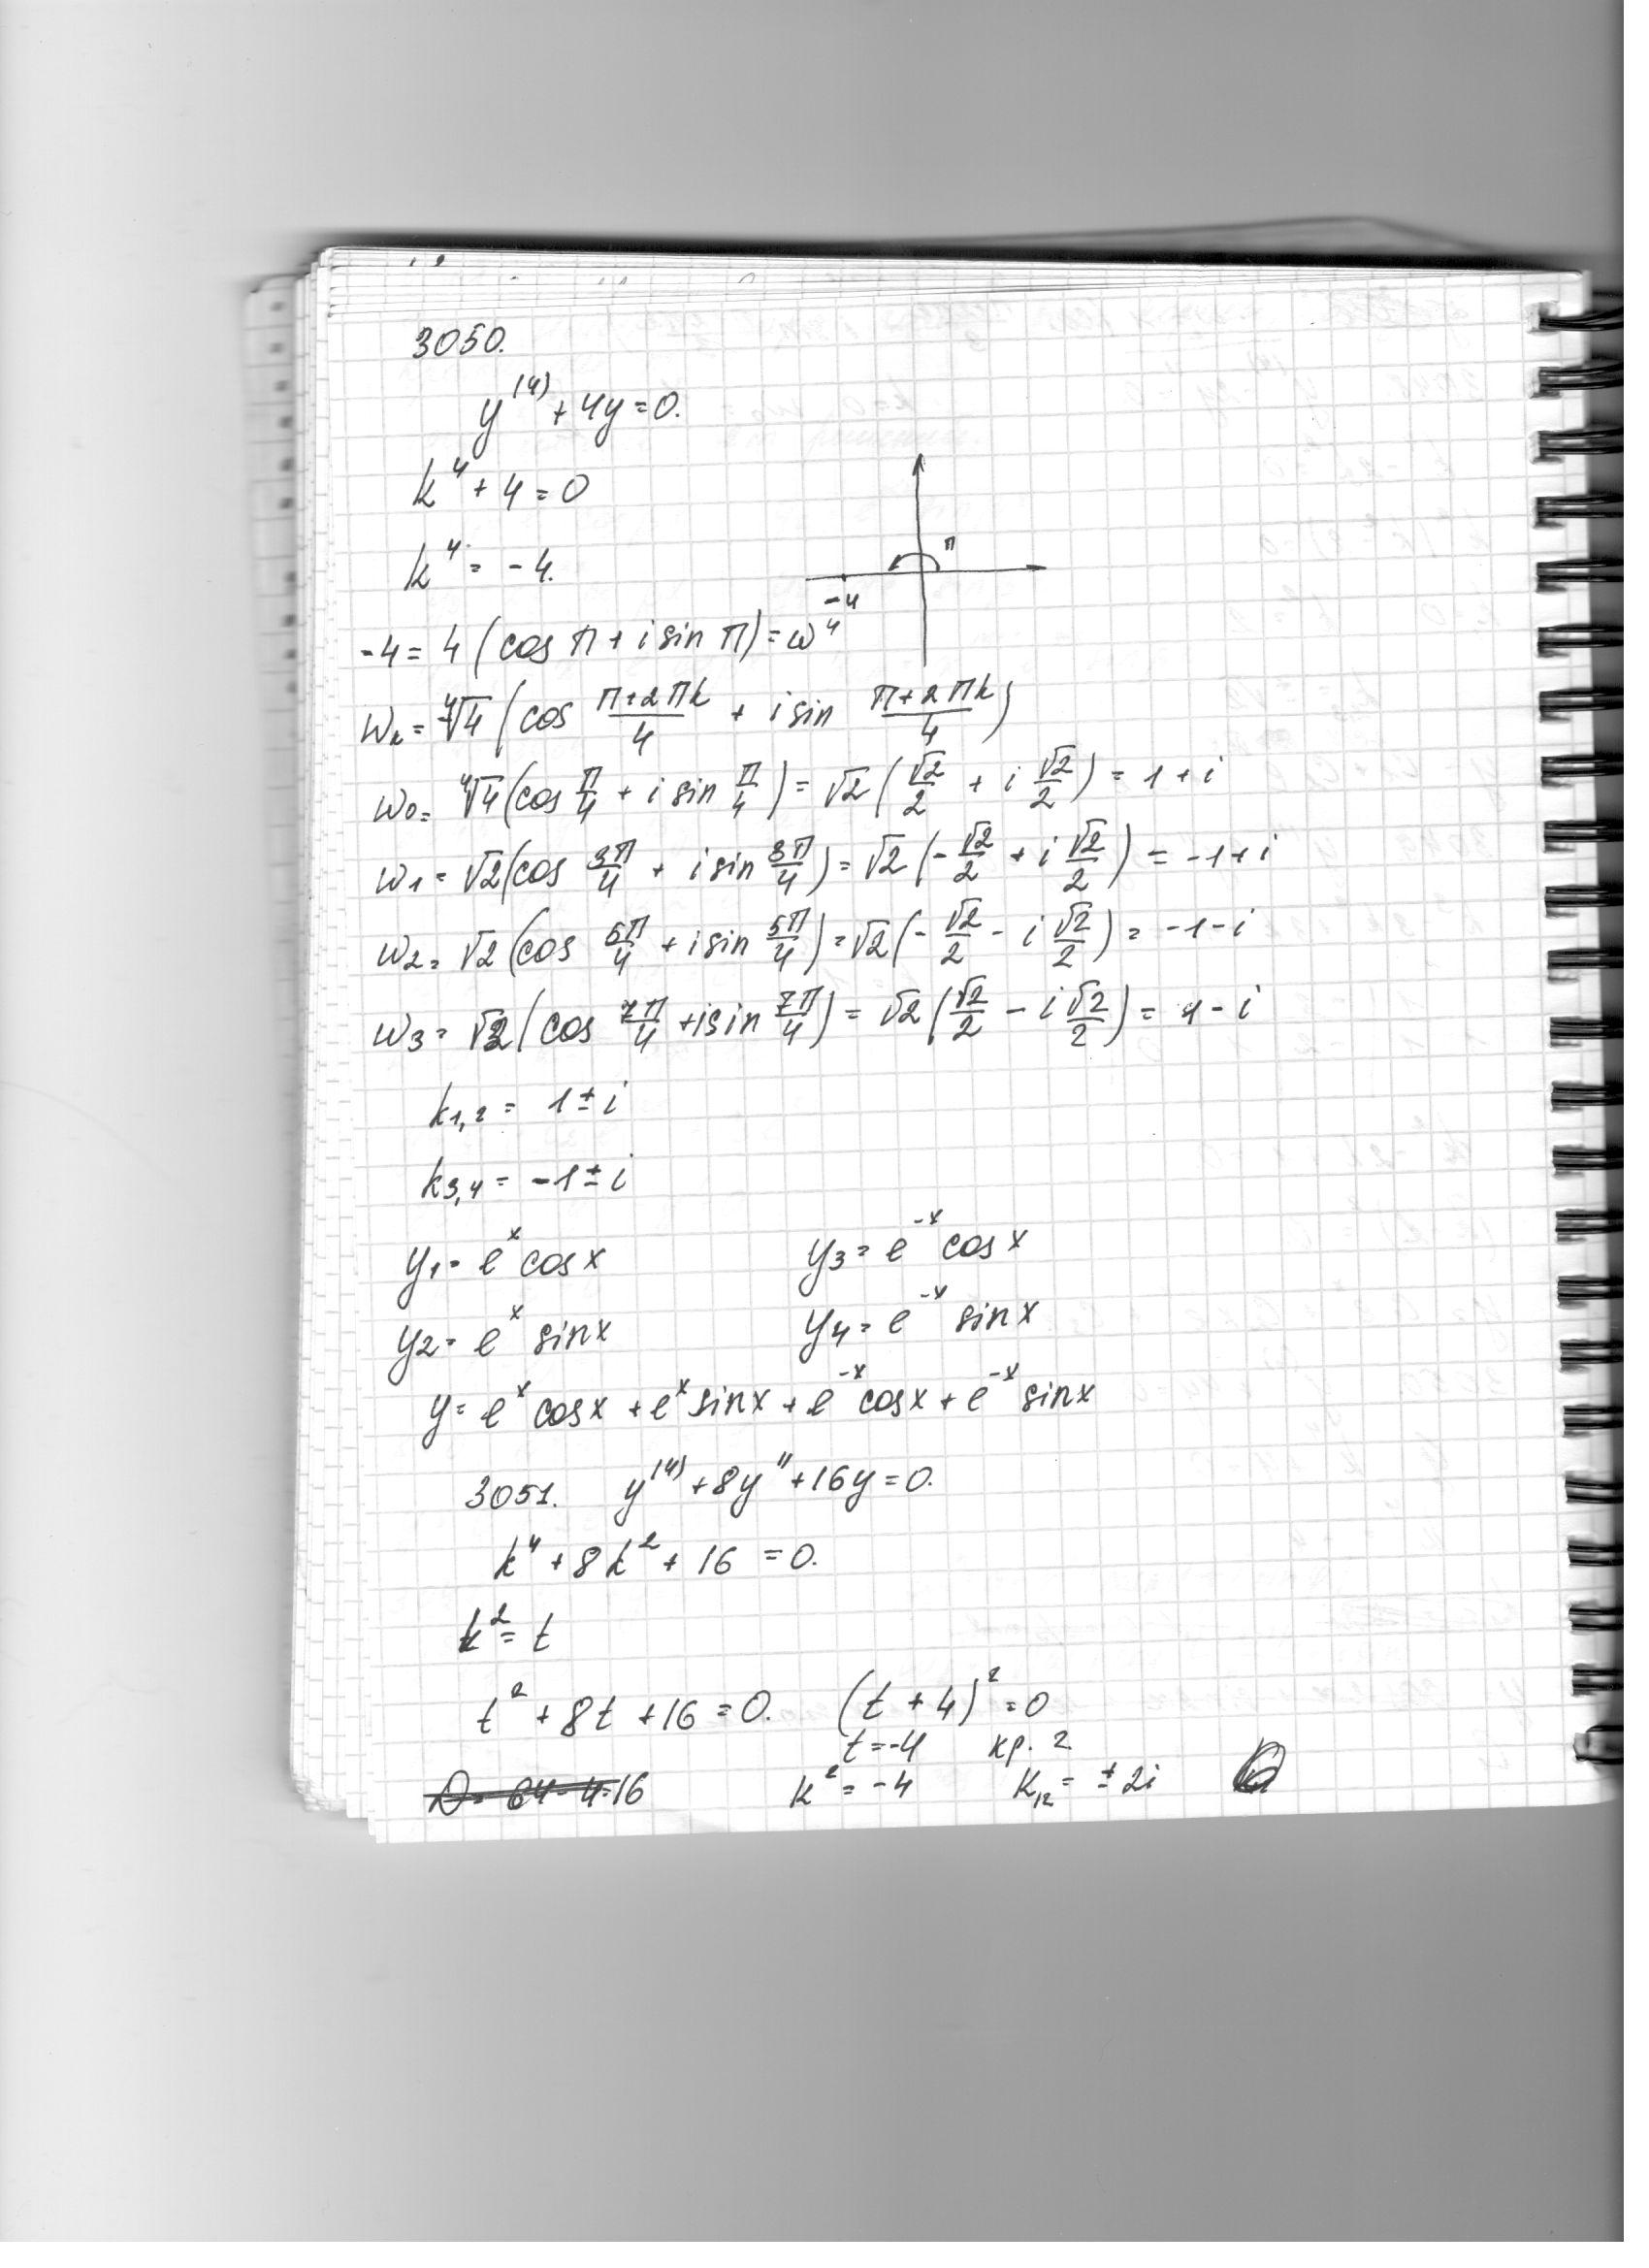 3050.
y⁽⁴⁾ + 4y = 0.
k⁴ + 4 = 0
k⁴ = -4.
π
-4
-4 = 4 (cos π + i sin π) = ω⁴
ωₖ = ⁴√4 (cos (π+2πk)/4 + i sin (π+2πk)/4)
ω₀ = ⁴√4 (cos π/4 + i sin π/4) = √2 (√2/2 + i √2/2) = 1 + i
ω₁ = √2 (cos 3π/4 + i sin 3π/4) = √2 (-√2/2 + i √2/2) = -1 + i
ω₂ = √2 (cos 5π/4 + i sin 5π/4) = √2 (-√2/2 - i √2/2) = -1 - i
ω₃ = √2 (cos 7π/4 + i sin 7π/4) = √2 (√2/2 - i √2/2) = 1 - i
k₁,₂ = 1 ± i
k₃,₄ = -1 ± i
y₁ = eˣ cos x y₃ = e⁻ˣ cos x
y₂ = eˣ sin x y₄ = e⁻ˣ sin x
y = eˣ cos x + eˣ sin x + e⁻ˣ cos x + e⁻ˣ sin x
3051. y⁽⁴⁾ + 8y'' + 16y = 0.
k⁴ + 8k² + 16 = 0.
k² = t
t² + 8t + 16 = 0. (t + 4)² = 0
t = -4 кр. 2
D = 64 - 4·16 k² = -4 k₁₂ = ± 2i